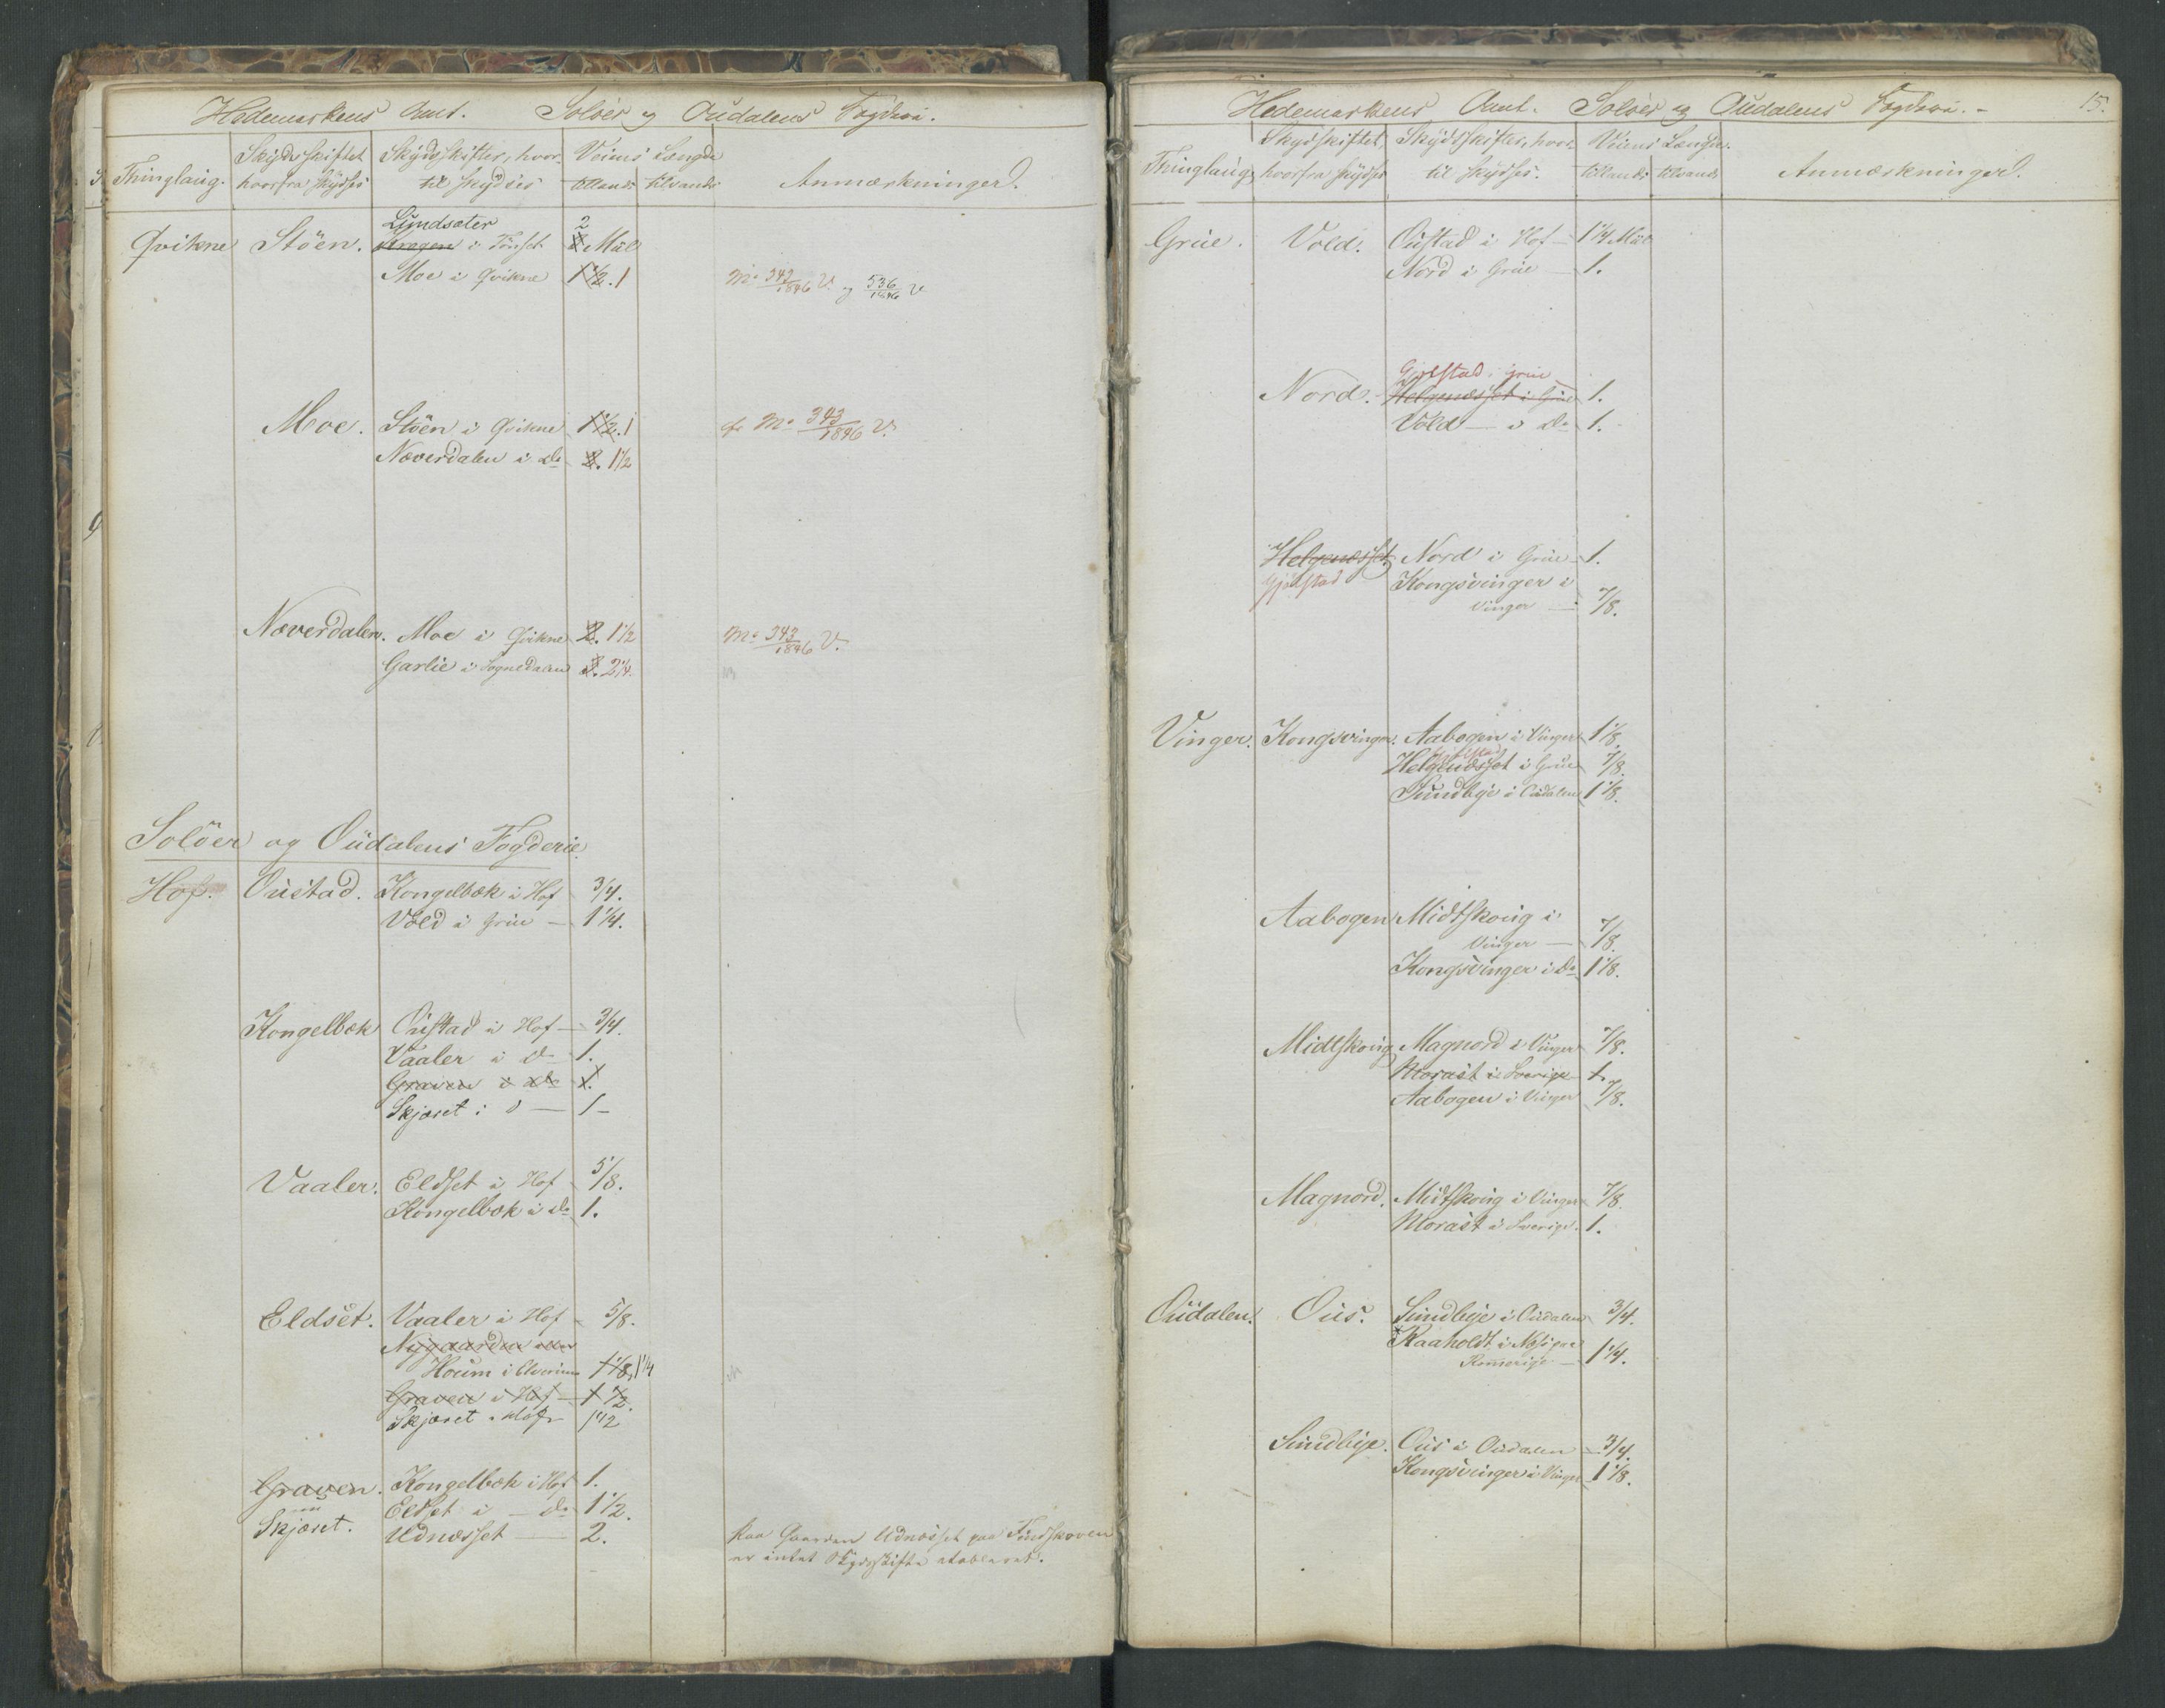 Hedemarkens Amt. Solöer og Oüdalens Fogderie.
Thinglaüg. Skydsskiftet hvorfra skydses Skydsskifter, hvortil skydses Veiens Længde tillands tilvands Anmærkninger.
Lündsæter 2
Qvikne Stöen. Kragen i Tönset 2 Miil
Moe i Qvikne 1 1/2. 1 M: 343/1846 V. og 536/1846 V
Moe. Stöen i Qvikne 1 1/2. 1 cfr M: 343/1846 V.
Næverdalen i do 2. 1 1/2
Næverdalen. Moe i Qvikne 2. 1 1/2 M: 343/1846 V.
Garlie i Sognedalen 2. 2 1/4.
Solöer og Oüdalens Fogderie.
Hof. Oüstad. Kongelbæk i Hof 3/4.
Vold i Grüe — 1 1/4.
Kongelbæk Oüstad i Hof — 3/4.
Vaaler i do 1.
Graven i do 1.
Skjæret i do — 1 –
Vaaler. Eldset i Hof 5/8.
Kongelbæk i do 1.
Eldset. Vaaler i Hof 5/8.
Nygaarden eller
Hoüm i Elverüm 1 1/8, 1 1/4
Graven i Hof — 1 1/2.
Skjæret i Hof — 1 1/2
Graven. Kongelbæk i Hof 1.
nü Eldset i — do 1 1/2.
Skjæret. Udnæsset — 2. Paa Gaarden Udnæsset paa Findskoven
er intet Skydsskifte etableret.
Hedemarkens Amt. Solöer og Oüdalens Fogderie. – 15.
Thinglaüg, Skydsskiftet, hvorfra skydses Skydsskifter, hvortil skydses. Veiens Længde. tillands tilvands Anmærkninger.
Grüe. Vold. Oüstad i Hof — 1 1/4 Miil
Nord i Grüe — 1.
Gjölstad i Grüe
Nord. Helgenæsset i Grüe 1.
Vold — i do 1.
Helgenæsset Nord i Grüe 1.
Gjölstad Kongsvinger i
Vinger — 7/8.
Vinger. Kongsvinger. Aabogen i Vinger 1 1/8
Gjölstad
Helgenæsset i Grüe 7/8.
Sundbye i Oüdalen 1 1/8.
Aabogen Midtskoüg i
Vinger — 7/8.
Kongsvinger i do 1 1/8.
Midtskoüg Magnord i Vinger 7/8.
Morast i Sverige 1.
Aabogen i Vinger 7/8.
Magnord. Midtskoüg i Vinger 7/8.
Morast i Sverige. 1.
Oüdalen. Oüs. Sündbye i Oüdalen 3/4.
Raaholdt i Næs paa
Romerige — 1 1/4.
Sündbye. Oüs i Oüdalen — 3/4.
Kongsvinger i Vinger 1 1/8.